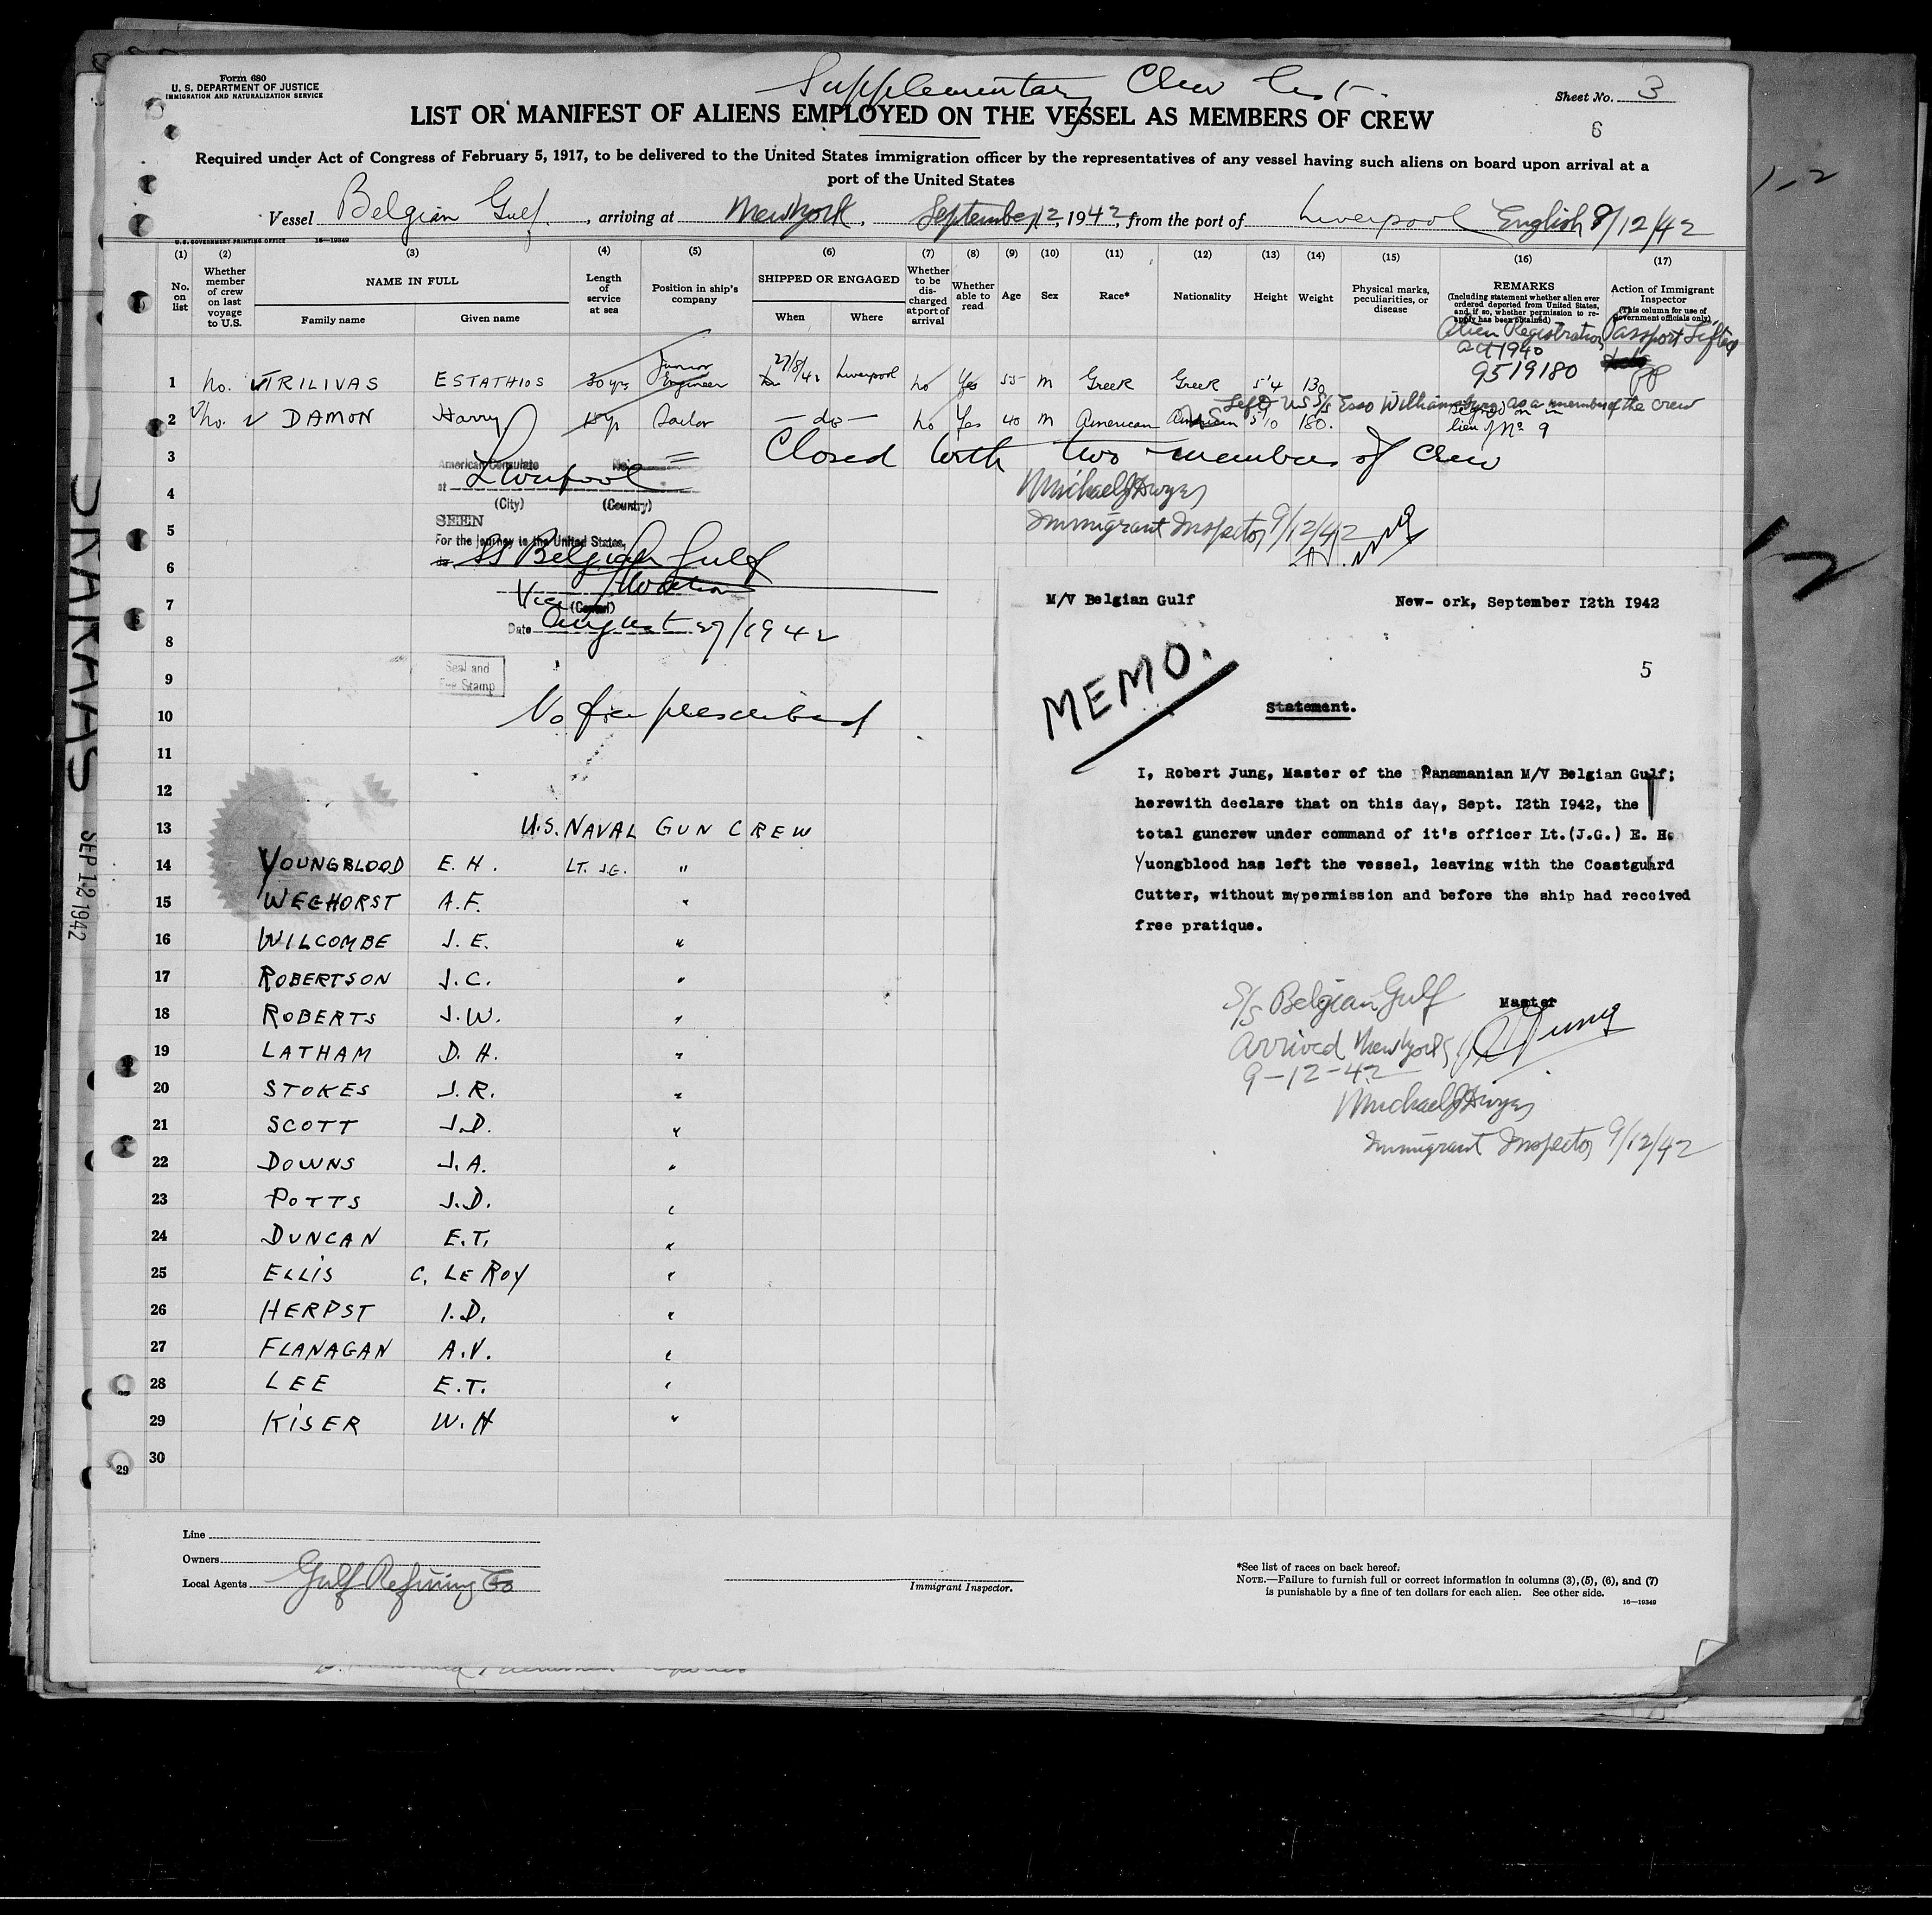 Form 680
U. S. DEPARTMENT OF JUSTICE
IMMIGRATION AND NATURALIZATION SERVICE
Supplementary Crew List.
Sheet No. 3
LIST OR MANIFEST OF ALIENS EMPLOYED ON THE VESSEL AS MEMBERS OF CREW
6
Required under Act of Congress of February 5, 1917, to be delivered to the United States immigration officer by the representatives of any vessel having such aliens on board upon arrival at a
port of the United States
1-2
Vessel Belgian Gulf, arriving at New York, September 12, 1942, from the port of Liverpool English 8/12/42
U.S. GOVERNMENT PRINTING OFFICE 16—19349
(1) (2) (3) (4) (5) (6) (7) (8) (9) (10) (11) (12) (13) (14) (15) (16) (17)
No. on list
Whether member of crew on last voyage to U.S.
NAME IN FULL
Family name
Given name
Length of service at sea
Position in ship's company
SHIPPED OR ENGAGED
When
Where
Whether to be discharged at port of arrival
Whether able to read
Age
Sex
Race*
Nationality
Height
Weight
Physical marks, peculiarities, or disease
REMARKS
(Including statement whether alien ever ordered deported from United States, and if so, whether permission to reapply has been obtained)
Action of Immigrant Inspector
(This column for use of Government officials only)
Alien Registration Passport Lifted
Act 1940
9519180
1 No. TRILIVAS ESTATHIOS 30 yrs Junior Engineer 27/8/42 Liverpool No Yes 55 M Greek Greek 5'4 130
Left U.S. S/S Esso Williamsburg as a member of the crew
2 No. DAMON Harry Sailor — do — No Yes 40 M American 5'10 180. signed on in lieu of No 9
3 Closed with two members of Crew
American Consulate No.
at Liverpool
(City) (Country)
4 Michael J Dwyer
5 Immigrant Inspector 9/12/42
SEEN
For the journey to the United States,
SS Belgian Gulf
6
7 Vice (Consul)
8 Date August 27/1942
9 Seal and Fee Stamp
10 No fee prescribed
11
12
13 U.S. NAVAL GUN CREW
14 YOUNGBLOOD E. H. LT. J.G. "
15 WEGHORST A.F. "
16 WILCOMBE J. E. "
17 ROBERTSON J.C. "
18 ROBERTS J.W. "
19 LATHAM D. H. "
20 STOKES J. R. "
21 SCOTT J.D. "
22 DOWNS J.A. "
23 POTTS J.D. "
24 DUNCAN E.T. "
25 ELLIS C. LE ROY "
26 HERPST I.D. "
27 FLANAGAN A.V. "
28 LEE E.T. "
29 KISER W.H "
30
29
SEP 12 1942
1-2
M/V Belgian Gulf
New- ork, September I2th I942
5
MEMO.
Statement.
I, Robert Jung, Master of the Panamanian M/V Belgian Gulf;
herewith declare that on this day, Sept. I2th I942, the
total guncrew under command of it's officer Lt.(J.G.) E. H.
Yuongblood has left the vessel, leaving with the Coastguard
Cutter, without my permission and before the ship had received
free pratique.
S/S Belgian Gulf
Master
Arrived New York
R Jung
9-12-42
Michael J Dwyer
Immigrant Inspector 9/12/42
Line
Owners
Local Agents Gulf Refining Co
Immigrant Inspector.
*See list of races on back hereof.
NOTE.—Failure to furnish full or correct information in columns (3), (5), (6), and (7)
is punishable by a fine of ten dollars for each alien. See other side.
16—19349